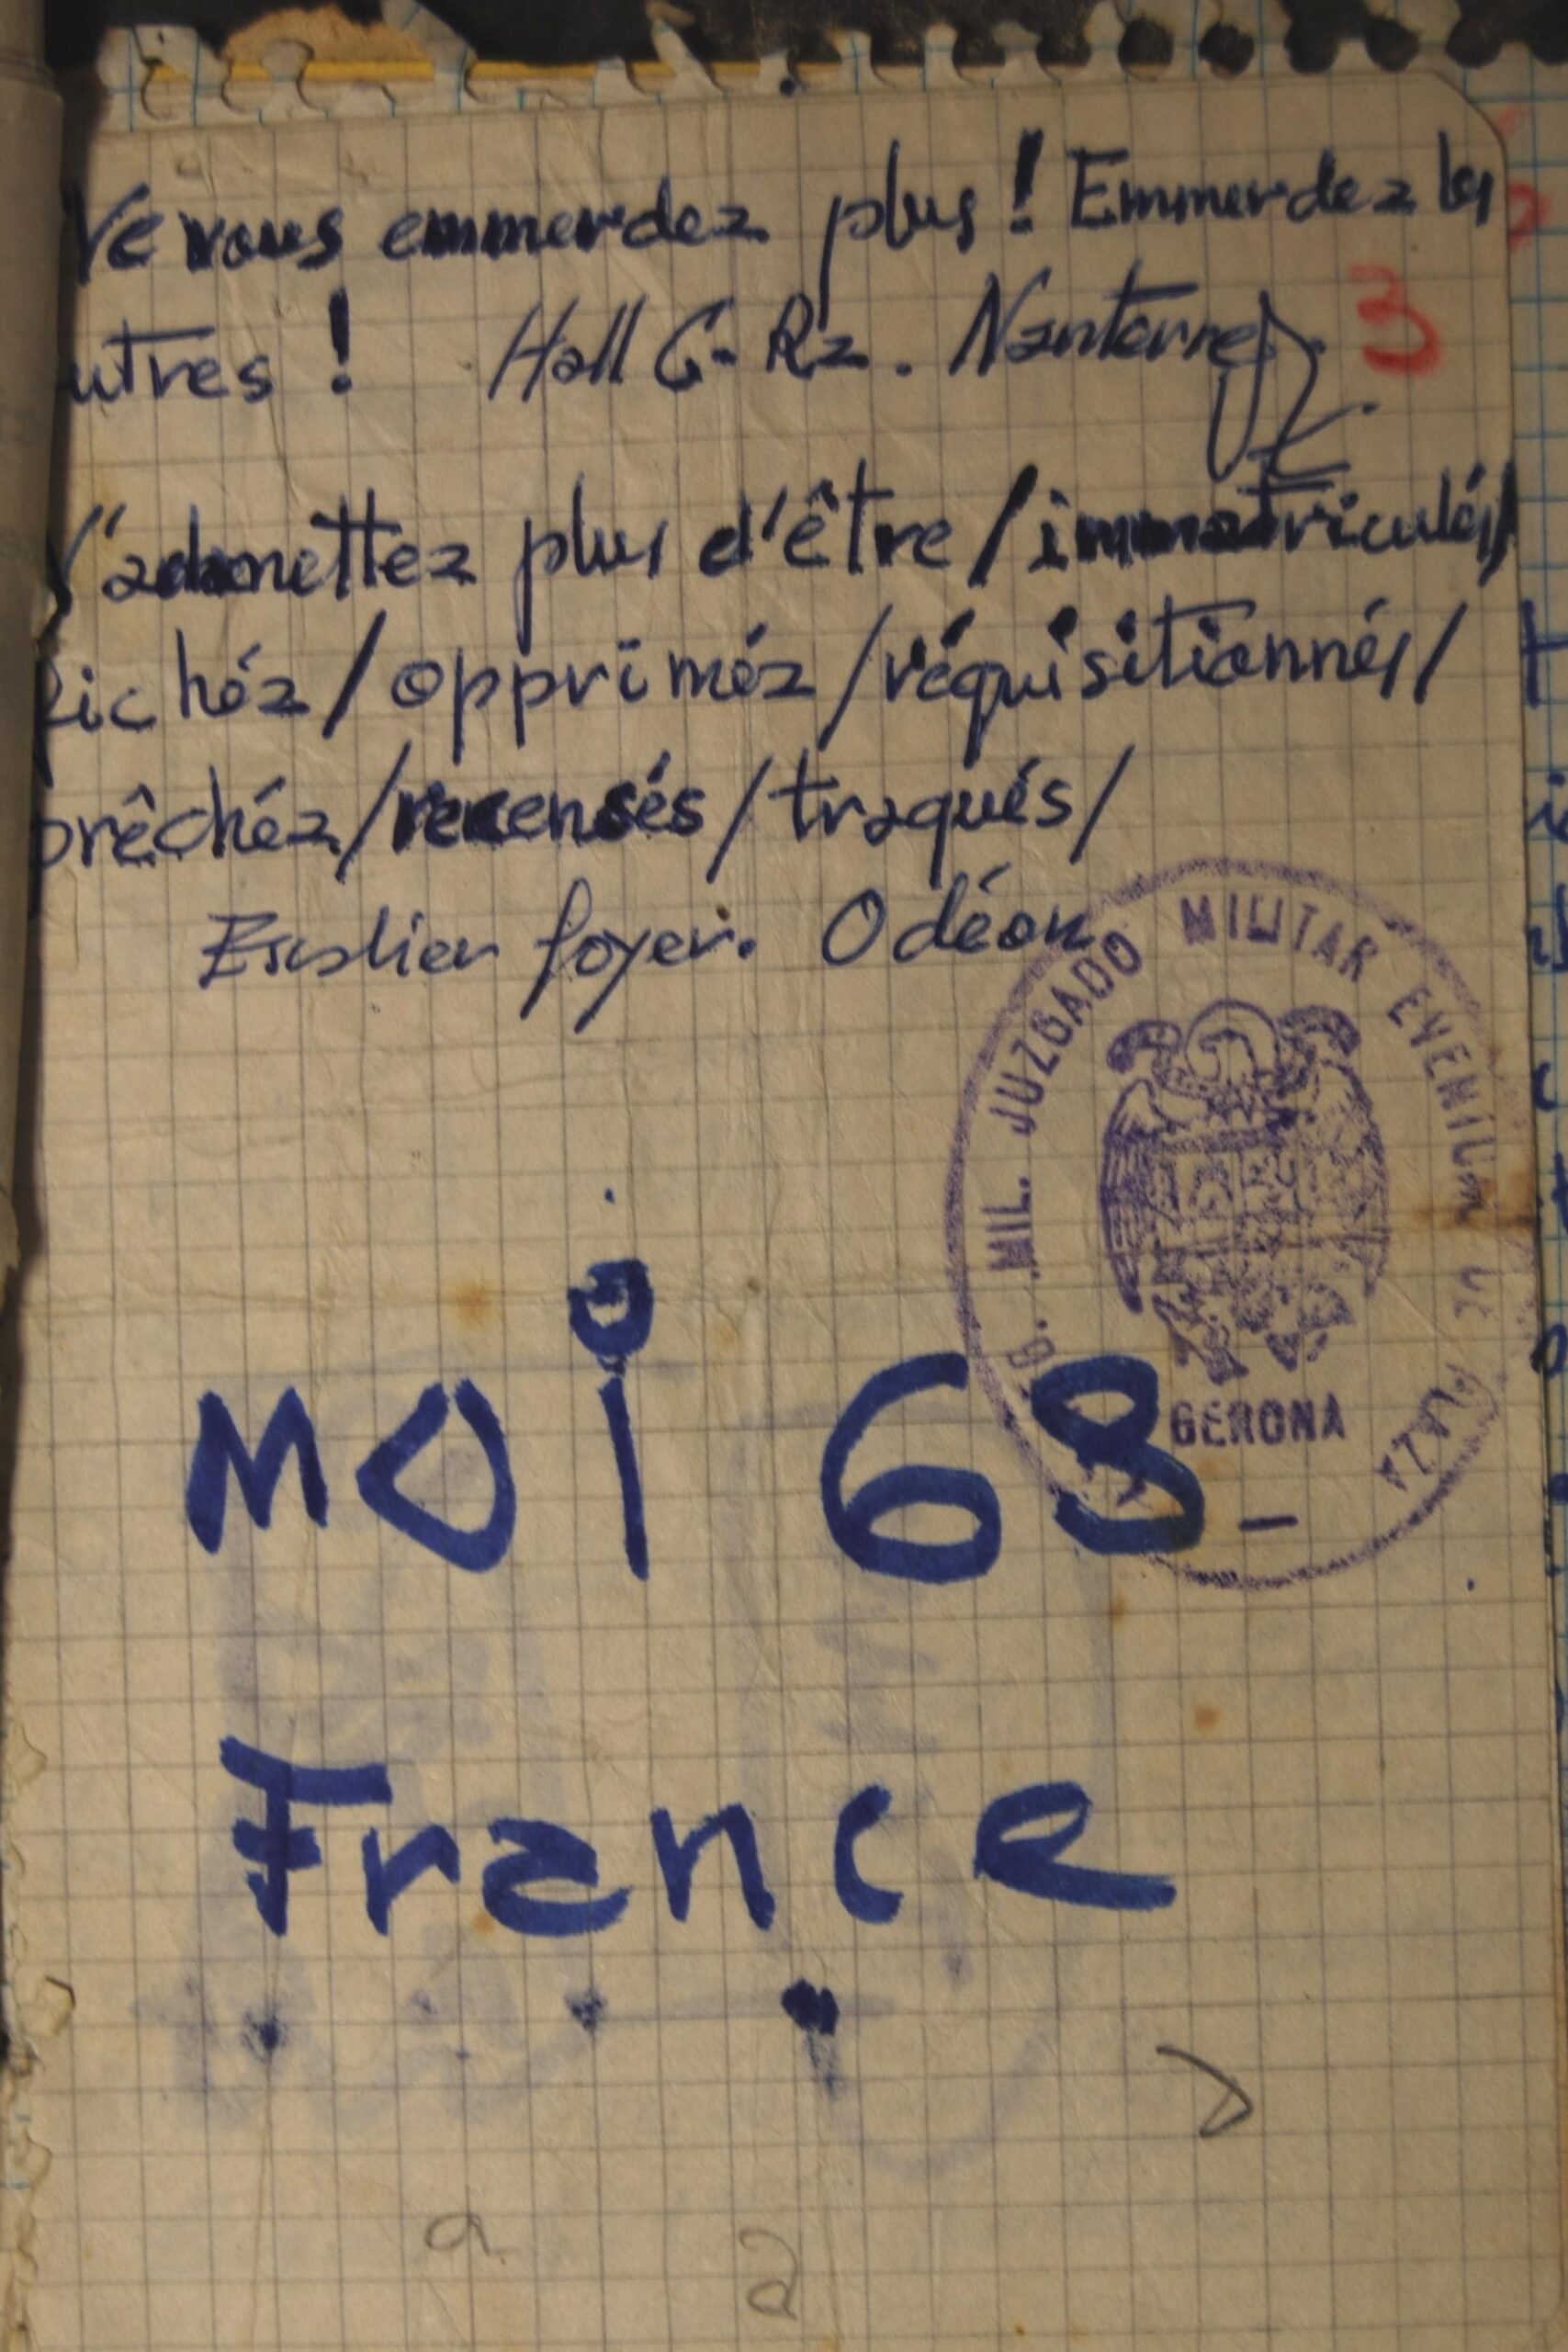 Ne vous emmerdez plus! Emmerdez les
utres! Hall C- Rz. Nanterre
3
N'admettez plus d'être/immatriculés/
fichéz/oppriméz/réquisitionnés/
prêchéz/recensés/traqués/
Escalier foyer. Odéon
MIL. JUZGADO MILITAR EVENTUAL PLAZA
GERONA
MOi 68
France
a a